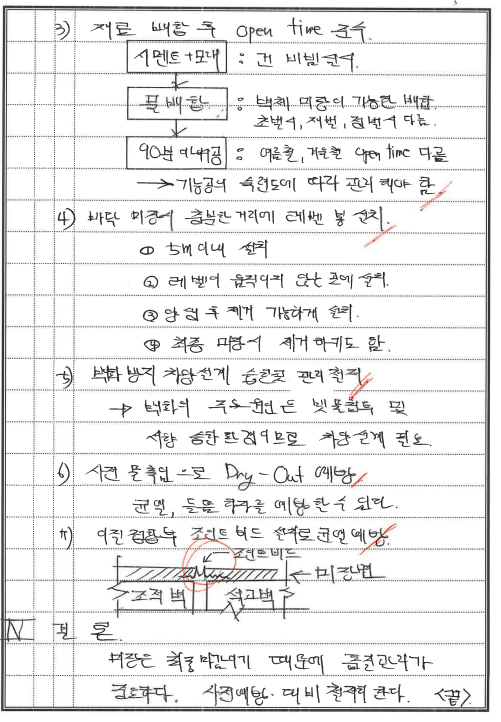 3) 재료 배합 후 open time 준수.
시멘트+모래 : 건 비빔 실시.
물배합 : 벽체 미장이 가능한 배합.
초벌시, 재벌, 정벌시 다름.
90분 이내시공 : 여름철, 겨울철 open time 다름
→ 기능공의 숙련도에 따라 관리 해야 함.
4) 바닥 미장시 충분한 거리에 레벨 봉 설치.
① 5m이내 설치
② 레벨이 움직이지 않는 곳에 설치.
③ 양생 후 제거 가능하게 설치.
④ 최종 미장시 제거하기도 함.
5) 백화 방지 차양설계 습한곳 관리 철저
→ 백화의 주요 원인은 빛 불침투 및
사항 습한 환경이므로 차양설계 필요.
6) 사전 물축임으로 Dry-Out 예방.
균열, 들뜸 하자를 예방할 수 있다.
7) 이질접합부 조인트비드 설치로 균열예방.
조인트비드
미장면
조적벽 석고벽
Ⅳ 결 론.
미장은 최종마감이기 때문에 품질관리가
중요하다. 사전예방·대비 철저히 한다. <끝>.